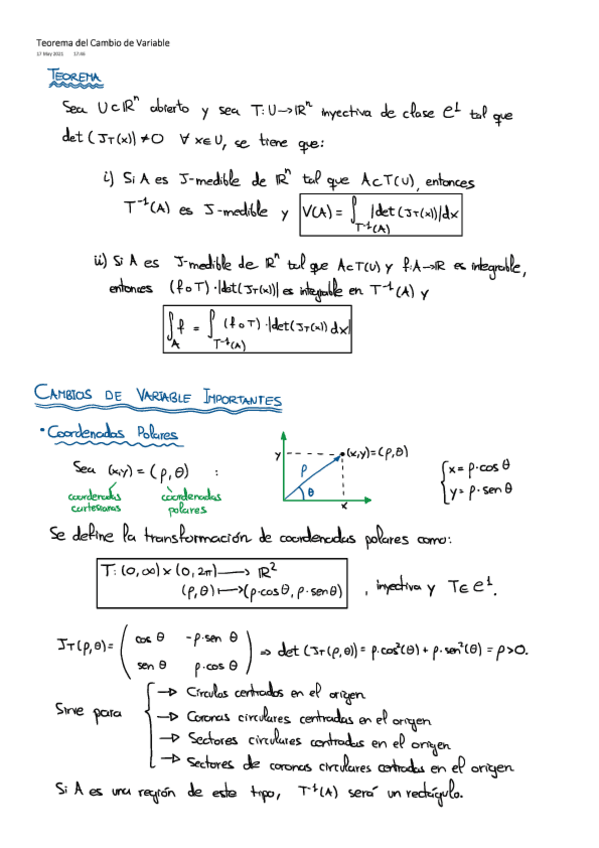 Teorema del Cambio de Variable
17 May 2021 17:46
TEOREMA
Sea U⊂ℝⁿ abierto y sea T: U→ℝⁿ inyectiva de clase C¹ tal que
det (J_T(x)) ≠ 0 ∀ x∈U, se tiene que:
i) Si A es J-medible de ℝⁿ tal que A⊂T(U), entonces
T⁻¹(A) es J-medible y V(A) = ∫_{T⁻¹(A)} |det(J_T(x))|dx
ii) Si A es J-medible de ℝⁿ tal que A⊂T(U) y f:A→ℝ es integrable,
entonces (f∘T)·|det(J_T(x))| es integrable en T⁻¹(A) y
∫_A f = ∫_{T⁻¹(A)} (f∘T)·|det(J_T(x)) dx|
CAMBIOS DE VARIABLE IMPORTANTES
• Coordenadas Polares
y (x,y)=(ρ,θ)
ρ θ
x
x = ρ·cos θ
y = ρ·sen θ
Sea (x,y) = (ρ,θ) :
coordenadas cartesianas
coordenadas polares
Se define la transformación de coordenadas polares como:
T: (0,∞) × (0,2π) → ℝ²
(ρ,θ) ↦ (ρ·cosθ, ρ·senθ)
, inyectiva y T∈C¹.
J_T(ρ,θ) = ( cos θ -ρ·sen θ
sen θ ρ·cos θ ) ⇒ det (J_T(ρ,θ)) = ρ·cos²(θ) + ρ·sen²(θ) = ρ>0.
Sirve para
→ Círculos centrados en el origen
→ Coronas circulares centradas en el origen
→ Sectores circulares centrados en el origen
→ Sectores de coronas circulares centradas en el origen
Si A es una región de este tipo, T⁻¹(A) será un rectángulo.